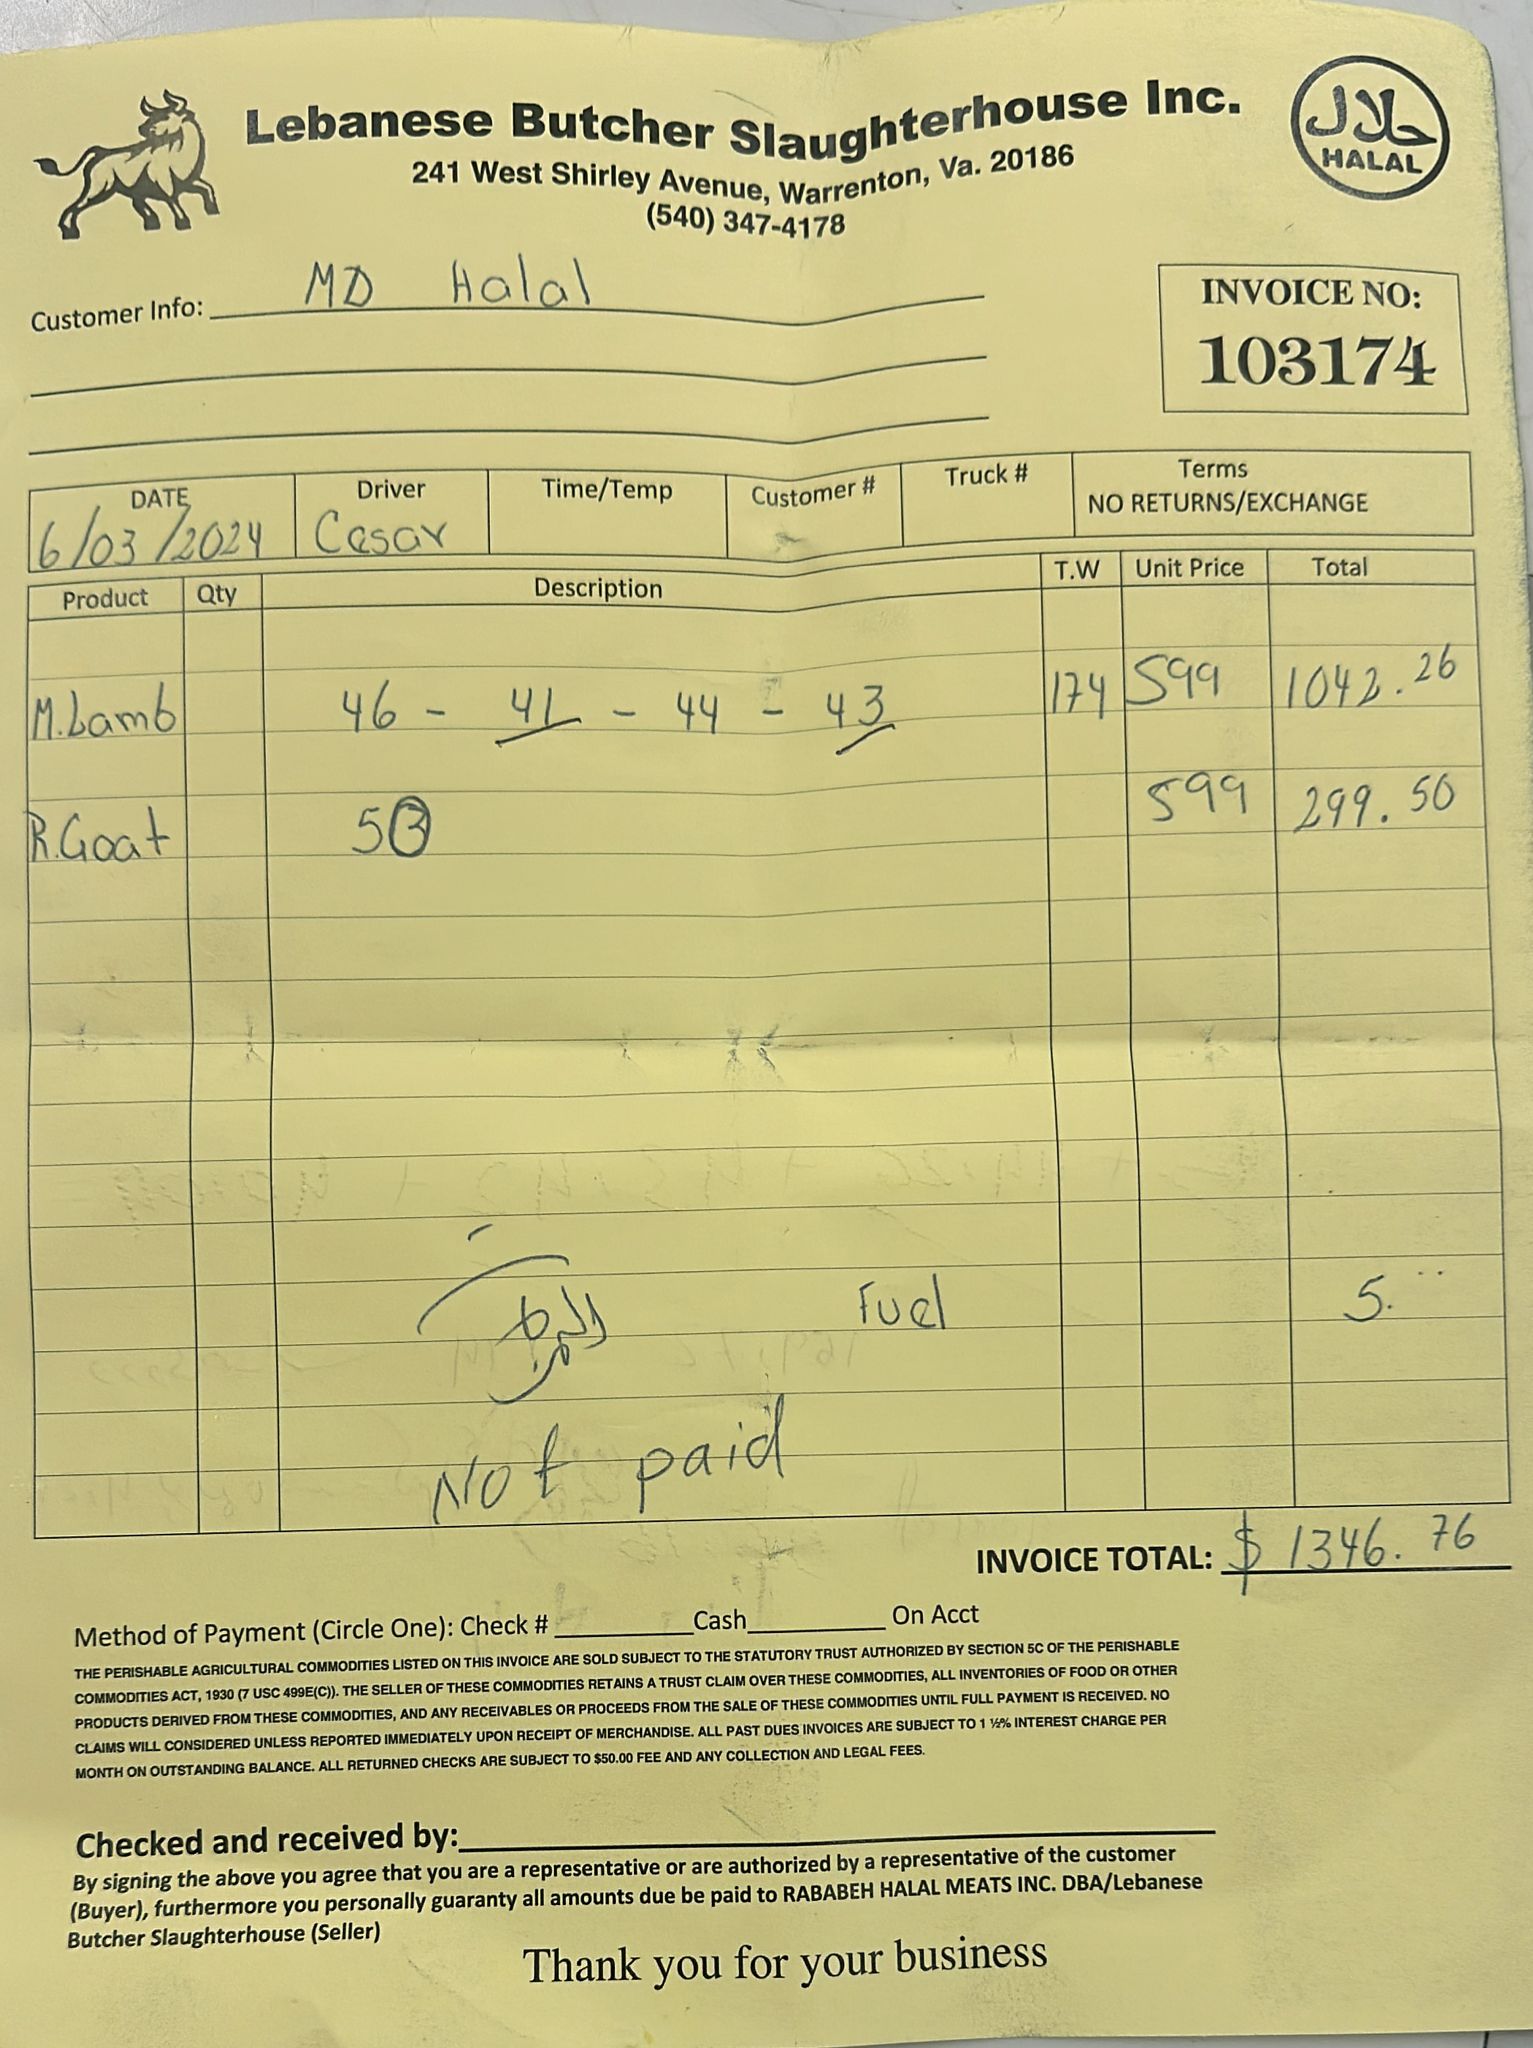 Lebanese Butcher Slaughterhouse Inc.
241 West Shirley Avenue, Warrenton, Va. 20186
(540) 347-4178
حلال
HALAL
Customer Info: MD Halal
INVOICE NO:
103174
DATE Driver Time/Temp Customer # Truck # Terms
NO RETURNS/EXCHANGE
6/03/2024 Cesar
Product Qty Description T.W Unit Price Total
M.Lamb 46 - 41 - 44 - 43 174 599 1042.26
R.Goat 50 599 299.50
Fuel 5.
Not paid
INVOICE TOTAL: $ 1346.76
Method of Payment (Circle One): Check # ________ Cash ________ On Acct
THE PERISHABLE AGRICULTURAL COMMODITIES LISTED ON THIS INVOICE ARE SOLD SUBJECT TO THE STATUTORY TRUST AUTHORIZED BY SECTION 5C OF THE PERISHABLE
COMMODITIES ACT, 1930 (7 USC 499E(C)). THE SELLER OF THESE COMMODITIES RETAINS A TRUST CLAIM OVER THESE COMMODITIES, ALL INVENTORIES OF FOOD OR OTHER
PRODUCTS DERIVED FROM THESE COMMODITIES, AND ANY RECEIVABLES OR PROCEEDS FROM THE SALE OF THESE COMMODITIES UNTIL FULL PAYMENT IS RECEIVED. NO
CLAIMS WILL CONSIDERED UNLESS REPORTED IMMEDIATELY UPON RECEIPT OF MERCHANDISE. ALL PAST DUES INVOICES ARE SUBJECT TO 1 ½% INTEREST CHARGE PER
MONTH ON OUTSTANDING BALANCE. ALL RETURNED CHECKS ARE SUBJECT TO $50.00 FEE AND ANY COLLECTION AND LEGAL FEES.
Checked and received by:
By signing the above you agree that you are a representative or are authorized by a representative of the customer
(Buyer), furthermore you personally guaranty all amounts due be paid to RABABEH HALAL MEATS INC. DBA/Lebanese
Butcher Slaughterhouse (Seller)
Thank you for your business